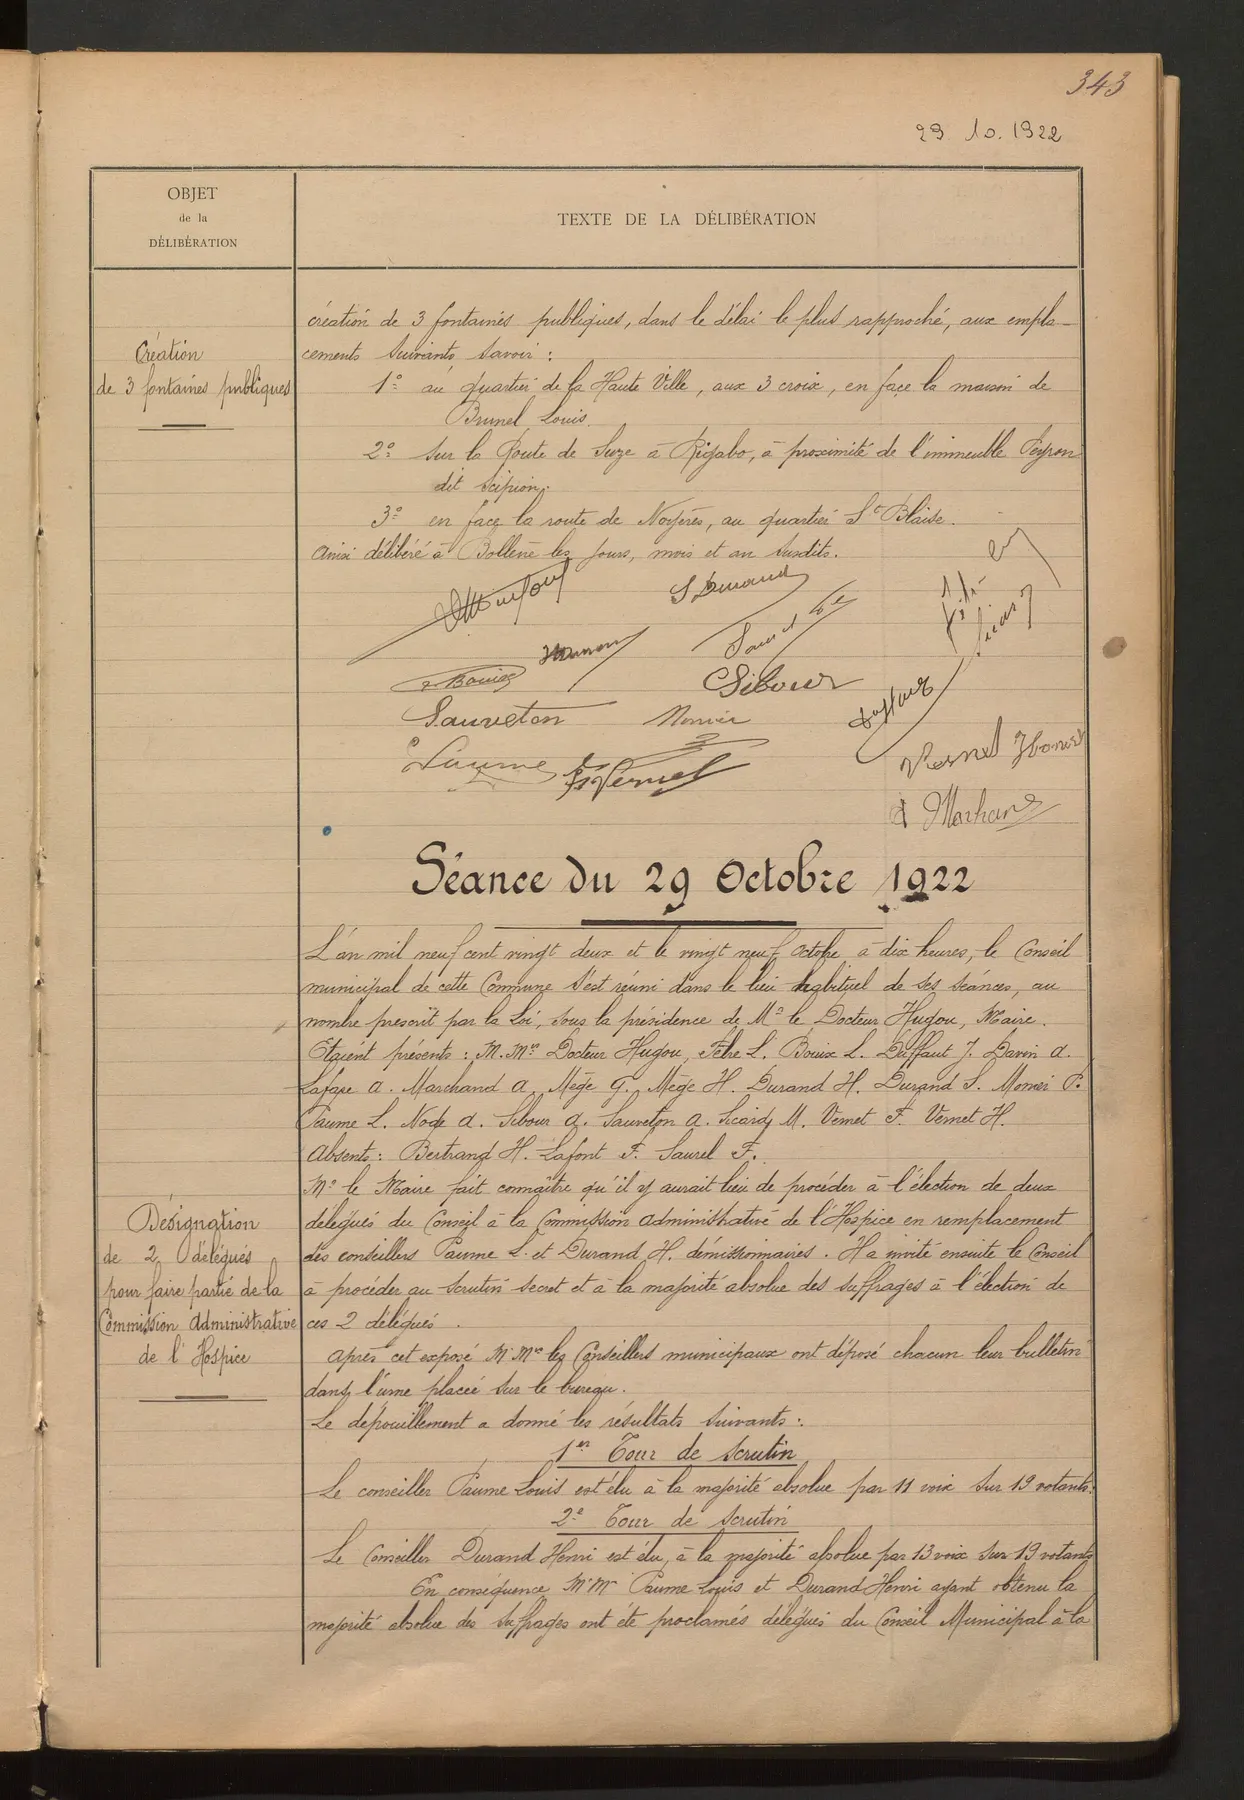 343
29 10. 1922
OBJET
de la
DÉLIBÉRATION
TEXTE DE LA DÉLIBÉRATION
Création
de 3 fontaines publiques
création de 3 fontaines publiques, dans le délai le plus rapproché, aux empla-
cements suivants savoir :
1º au quartier de la Haute Ville, aux 3 croix, en face la maison de
Brunel Louis.
2º sur la Route de Suze à Rigabo, à proximité de l'immeuble Peyron
dit scipion.
3º en face la route de Noyères, au quartier St Blaise.
Ainsi délibéré à Bollène les jours, mois et an susdits.
S Durand
Bouix
Sibour
Sauveton
Monier
Duffaut
Paume
F Vernet
Vernet Honoré
A Marchand
Séance du 29 Octobre 1922
L'an mil neuf cent vingt deux et le vingt neuf Octobre à dix heures, le Conseil
municipal de cette Commune s'est réuni dans le lieu habituel de ses séances, au
nombre prescrit par la Loi, sous la présidence de Mr le Docteur Hugou, Maire.
Etaient présents : M.Mrs Docteur Hugou, Fètre L. Bouix L. Duffaut J. Davin A.
Lafare A. Marchand A. Mège G. Mège H. Durand H. Durand S. Monier P.
Paume L. Node A. Sibour A. Sauveton A. Sicard M. Vernet F. Vernet H.
Absents : Bertrand H. Lafont F. Saurel F.
Désignation
de 2 délégués
pour faire partie de la
Commission Administrative
de l'Hospice
Mr le Maire fait connaître qu'il y aurait lieu de procéder à l'élection de deux
délégués du Conseil à la Commission Administrative de l'Hospice en remplacement
des conseillers Paume L. et Durand H. démissionnaires. Il a invité ensuite le Conseil
à procéder au scrutin secret et à la majorité absolue des suffrages à l'élection de
ces 2 délégués.
Après cet exposé M.Mrs les Conseillers municipaux ont déposé chacun leur bulletin
dans l'urne placée sur le bureau.
Le dépouillement a donné les résultats suivants :
1er Tour de scrutin
Le conseiller Paume Louis est élu à la majorité absolue par 11 voix sur 19 votants.
2e Tour de scrutin
Le Conseiller Durand Henri est élu, à la majorité absolue par 13 voix sur 19 votants
En conséquence M.M. Paume Louis et Durand Henri ayant obtenu la
majorité absolue des suffrages ont été proclamés délégués du Conseil Municipal à la